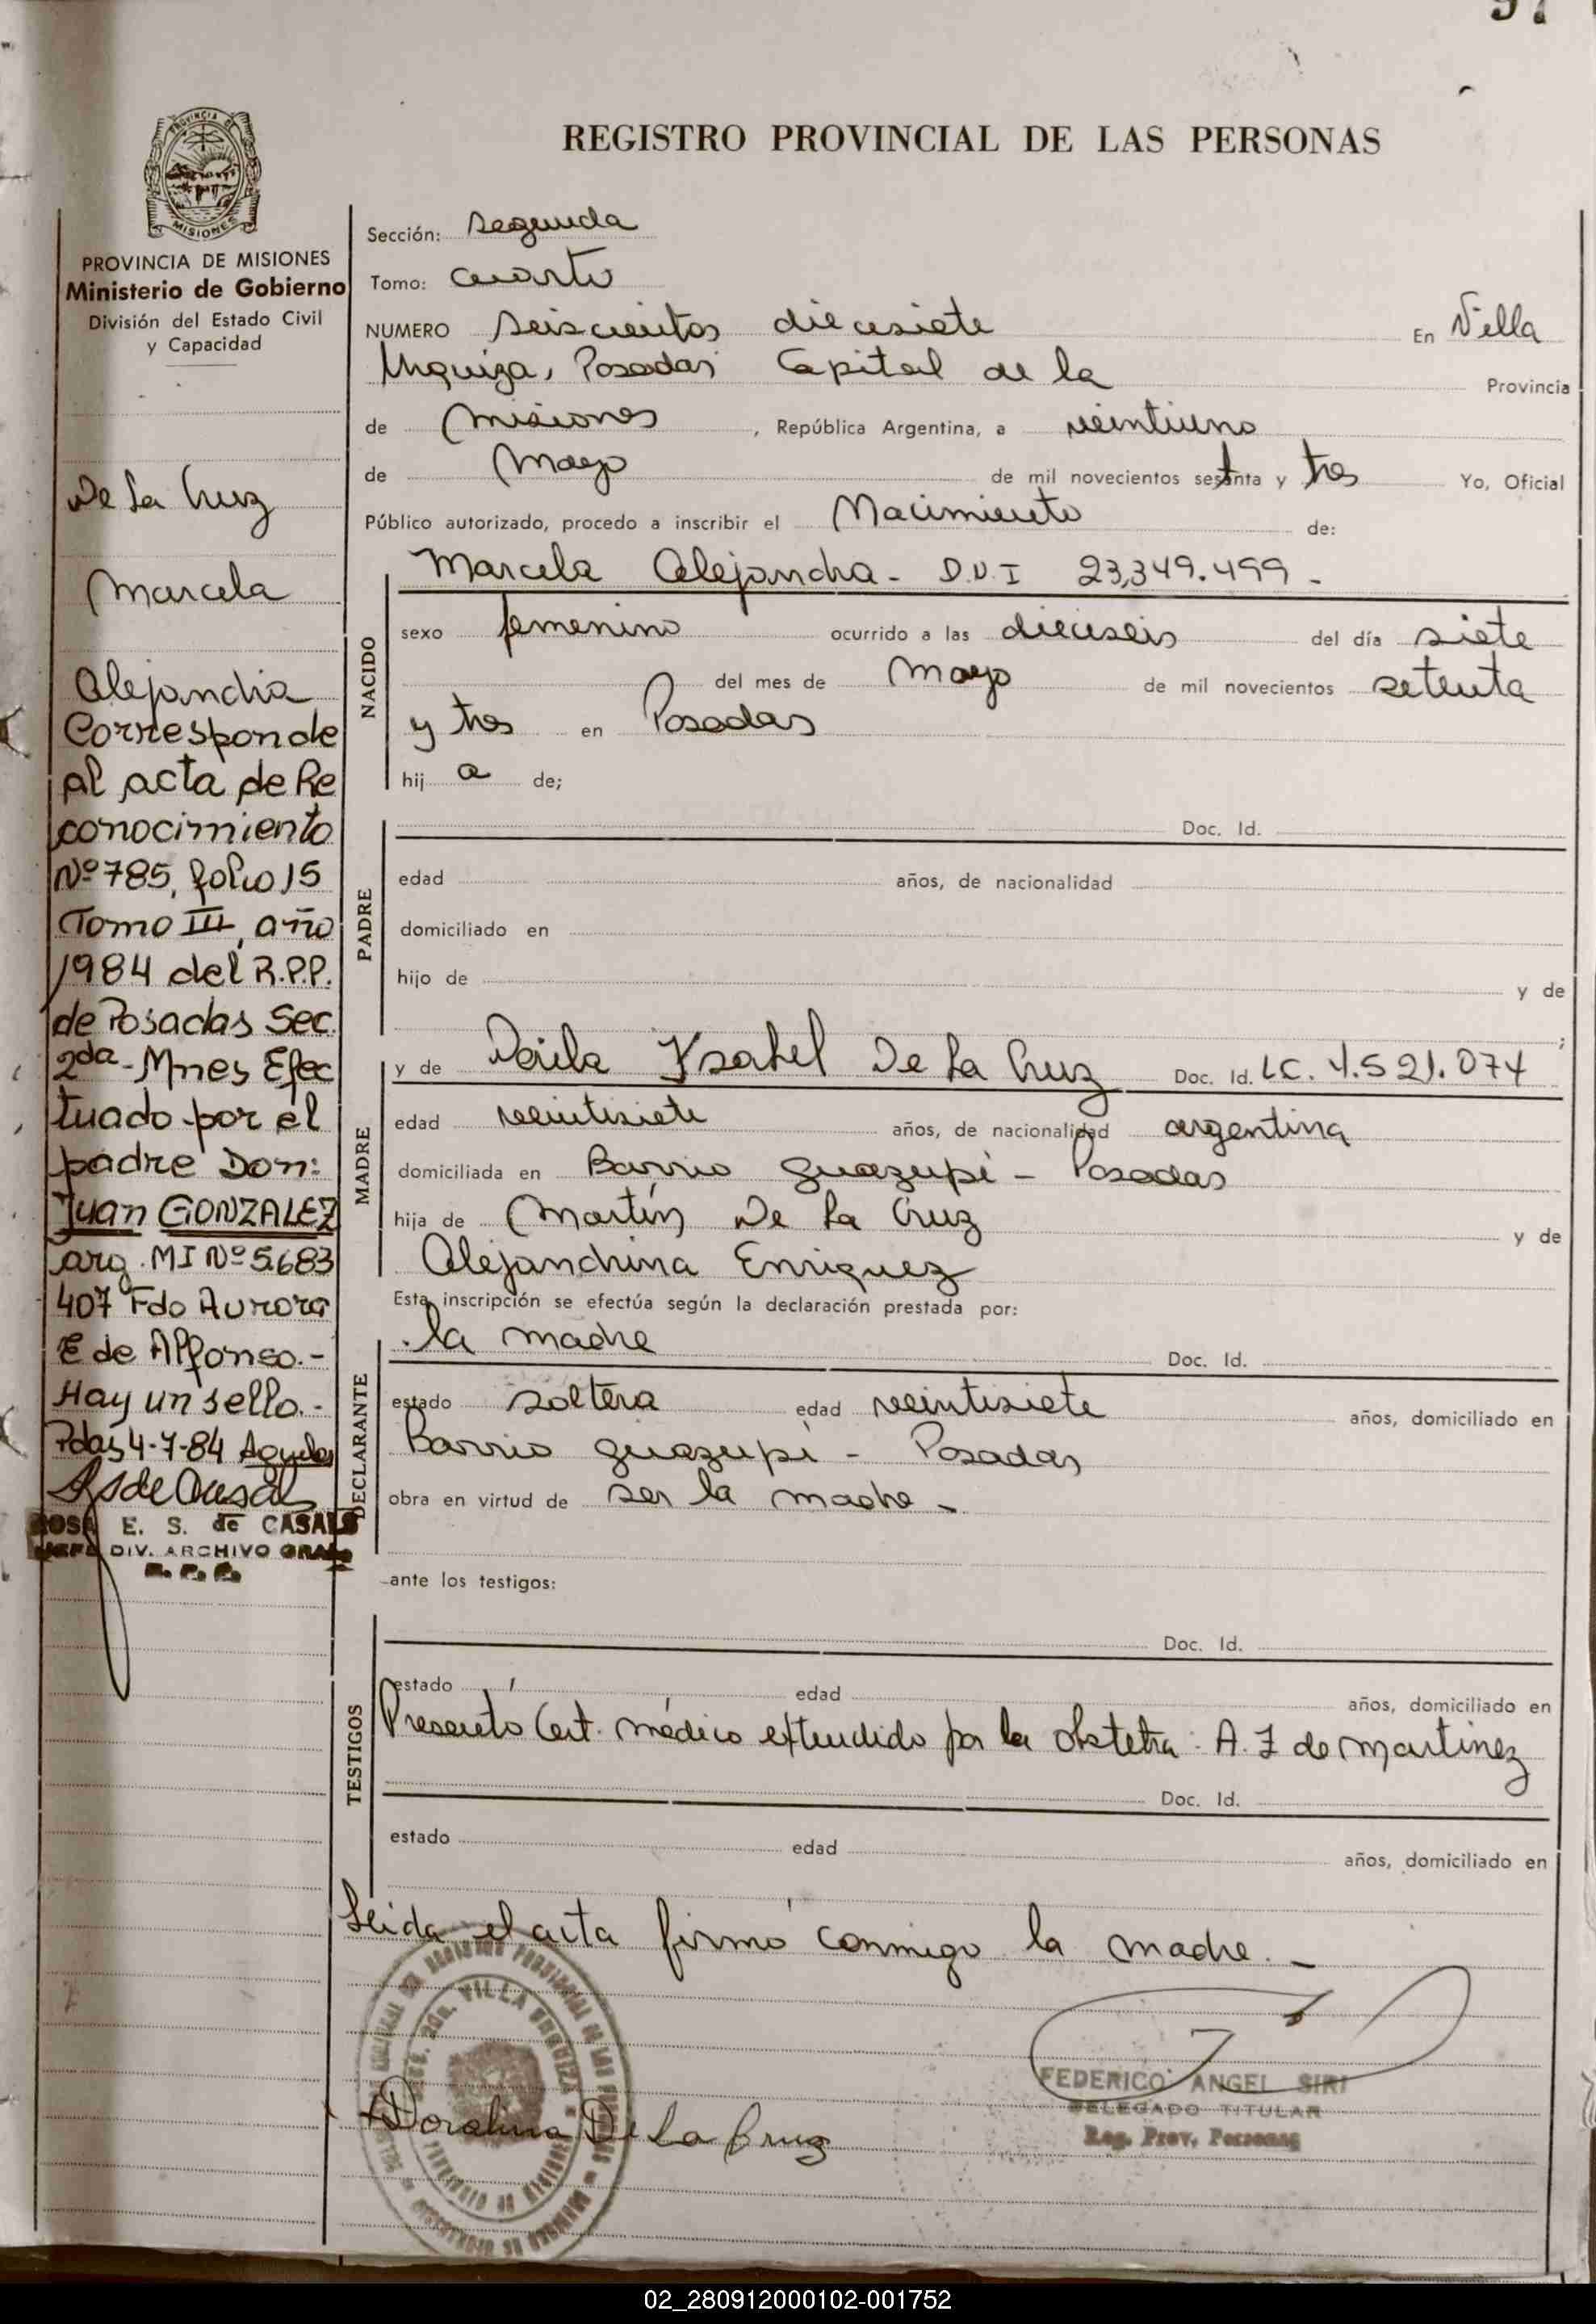 97
REGISTRO PROVINCIAL DE LAS PERSONAS
PROVINCIA DE MISIONES
PROVINCIA DE MISIONES
Ministerio de Gobierno
División del Estado Civil
y Capacidad
De La Cruz
Marcela
Alejandra
Corresponde
al acta de Re
conocimiento
Nº 785, folio 15
Tomo III, año
1984 del R.P.P.
de Posadas Sec.
2da - Mnes Efec
tuado por el
padre Don:
Juan GONZALEZ
arg. MI Nº 5.683
407 Fdo Aurora
E de Alfonso.-
Hay un sello.-
Pdas 4-7-84
ROSA E. S. de CASALS
JEFE DIV. ARCHIVO GRAL
R. P. P.
Sección: Segunda
Tomo: cuarto
NUMERO Seiscientos diecisiete En Villa
Urquiza, Posadas Capital de la Provincia
de Misiones, República Argentina, a veintiuno
de Mayo de mil novecientos setenta y tres Yo, Oficial
Público autorizado, procedo a inscribir el Nacimiento de:
NACIDO
Marcela Alejandra - D.N.I 23,349.499 -
sexo femenino ocurrido a las dieciseis del día siete
del mes de Mayo de mil novecientos setenta
y tres en Posadas
hij a de;
PADRE
Doc. Id.
edad años, de nacionalidad
domiciliado en
hijo de y de
;
MADRE
y de Ysabel De La Cruz Doc. Id. LC. 4.521.074
edad veintisiete años, de nacionalidad argentina
domiciliada en Barrio guazupi - Posadas
hija de Martín De La Cruz y de
Alejandrina Enriquez
Esta inscripción se efectúa según la declaración prestada por:
DECLARANTE
la madre Doc. Id.
estado soltera edad veintisiete años, domiciliado en
Barrio guazupi - Posadas
obra en virtud de ser la madre -
ante los testigos:
TESTIGOS
Doc. Id.
estado edad años, domiciliado en
Presentó Cert. médico extendido por la obstetra: A. Z de Martinez
Doc. Id.
estado edad años, domiciliado en
Leida el acta firmó conmigo la madre.-
VILLA URQUIZA
De La Cruz
FEDERICO ANGEL SIRI
DELEGADO TITULAR
Reg. Prov. Personas
02_280912000102-001752